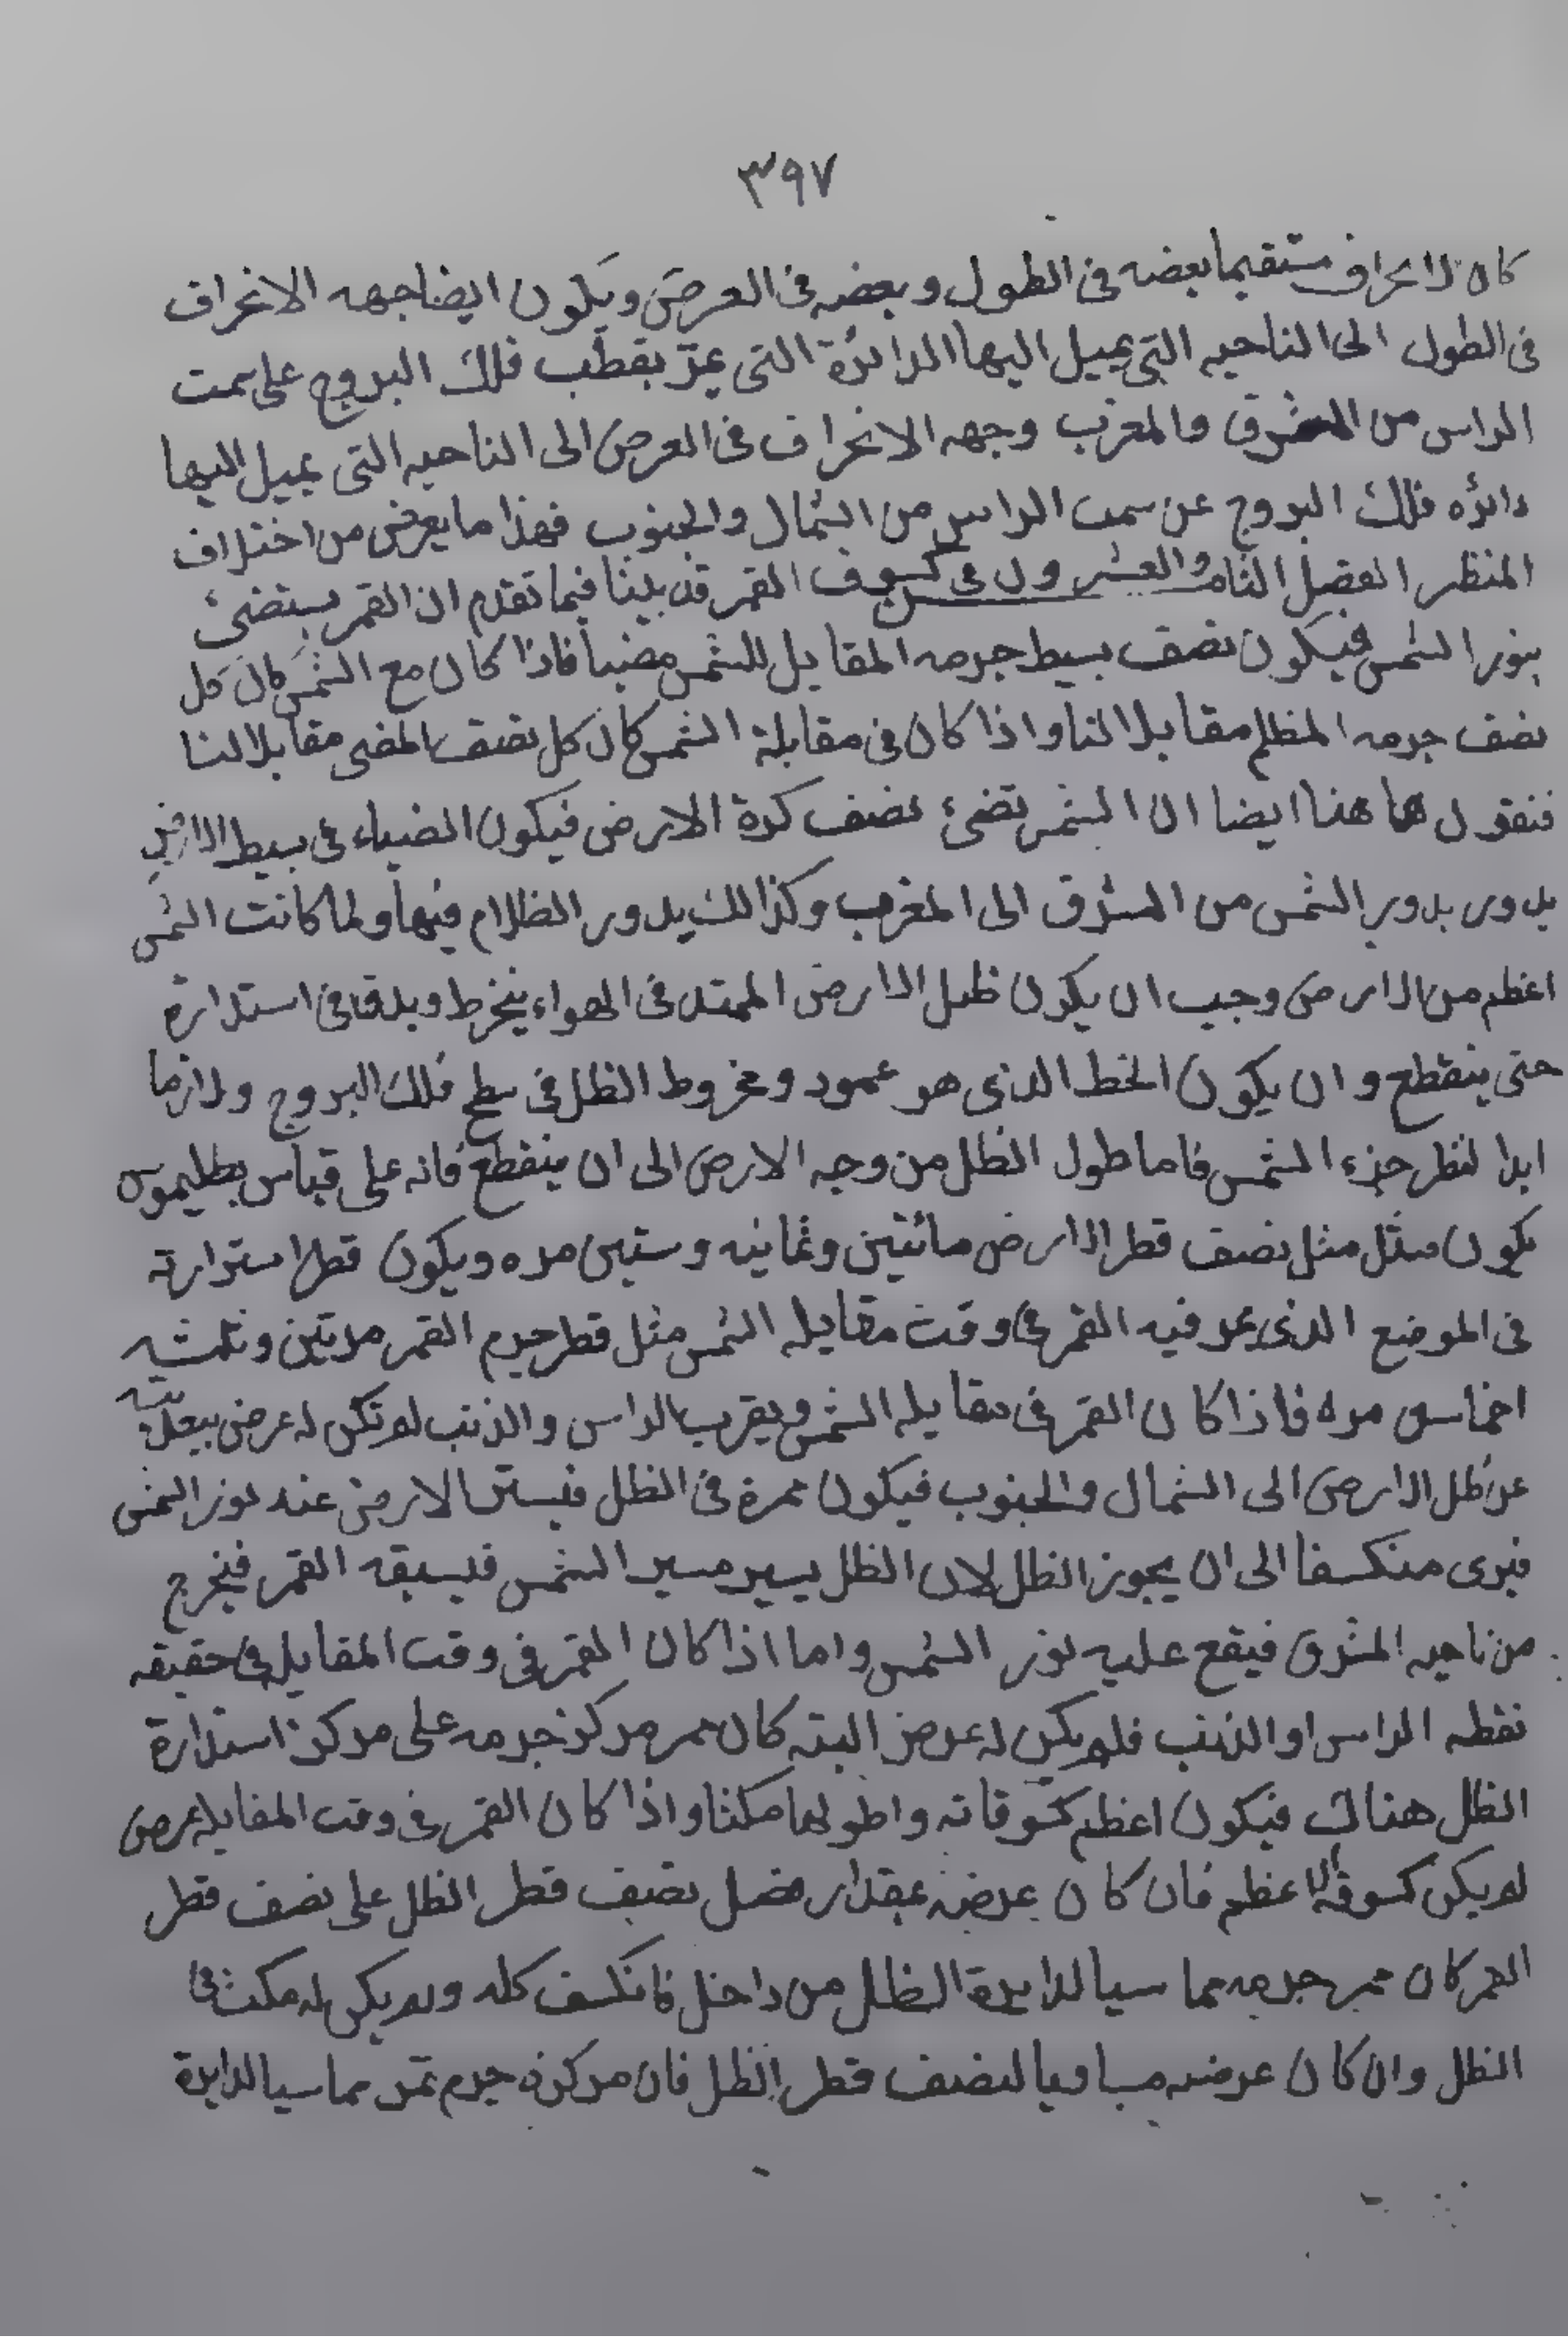 ٣٩٧
كان الانحراف مستقيما بعضه فى الطول وبعضه فى العرض ويكون ايضا جهه الانحراف
فى الطول الى الناحيه التى يميل اليها الدائرة التى يمر بقطب فلك البروج على سمت
الراس من المشرق والمغرب وجهه الانحراف فى العرض الى الناحيه التى يميل اليها
دائره فلك البروج عن سمت الراس من الشمال والجنوب فهذا ما يعرض من اختلاف
المنظر الفصل الثامن والعشرون فى كسوف القمر قد بينا فيما تقدم ان القمر يستضىء
بنور الشمس فيكون نصف بسيط جرمه المقابل للشمس مضيا فاذا كان مع الشمس كان كل
نصف جرمه المظلم مقابلا لنا واذا كان فى مقابلة الشمس كان كل نصف المضى مقابلا لنا
فنقول ها هنا ايضا ان الشمس تضىء نصف كرة الارض فيكون الضياء فى بسيط الارض
يدور بدور الشمس من المشرق الى المغرب وكذالك يدور الظلام فيها ولما كانت الشمس
اعظم من الارض وجب ان يكون ظل الارض الممتد فى الهواء ينخرط ويدق فى استدارة
حتى ينقطع وان يكون الخط الذى هو عمود ومخروط الظل فى سطح فلك البروج ولازما
ابدا لنظر جزء الشمس فاما طول الظل من وجه الارض الى ان ينقطع فانه على قياس بطليموس
يكون مثل مثل نصف قطر الارض مائتين وثمانيه وستين مره ويكون قطر استدارة
فى الموضع الذى يمر فيه القمر فى وقت مقابله الشمس مثل قطر جرم القمر مرتين وثلثه
اخماس مره فاذا كان القمر فى مقابله الشمس وبقرب الراس والذنب لم تكن له عرض
عن ظل الارض الى الشمال والجنوب فيكون ممرة فى الظل فيستر الارض عنه نور الشمس
فيرى منكسفا الى ان يجوز الظل لان الظل يسير مسير الشمس فيسبقه القمر فيخرج
من ناحيه المشرق فيقع عليه نور الشمس واما اذا كان القمر فى وقت المقابله فى حقيقه
نقطه الراس او الذنب فلم يكن له عرض البته كان ممر مركز جرمه على مركز استدارة
الظل هناك فيكون اعظم كسوفاته واطولها مكثا واذا كان القمر فى وقت المقابله عرض
لم يكن كسوفه الاعظم فان كان عرضه بمقدار فضل نصف قطر الظل على نصف قطر
القمر كان ممر جرمه مماسيا لدايرة الظل من داخل فانكسف كله ولم يكن له مكث فى
الظل وان كان عرضه مساويا لنصف قطر الظل فان مركزه جرم تمر مماسيا لدايرة